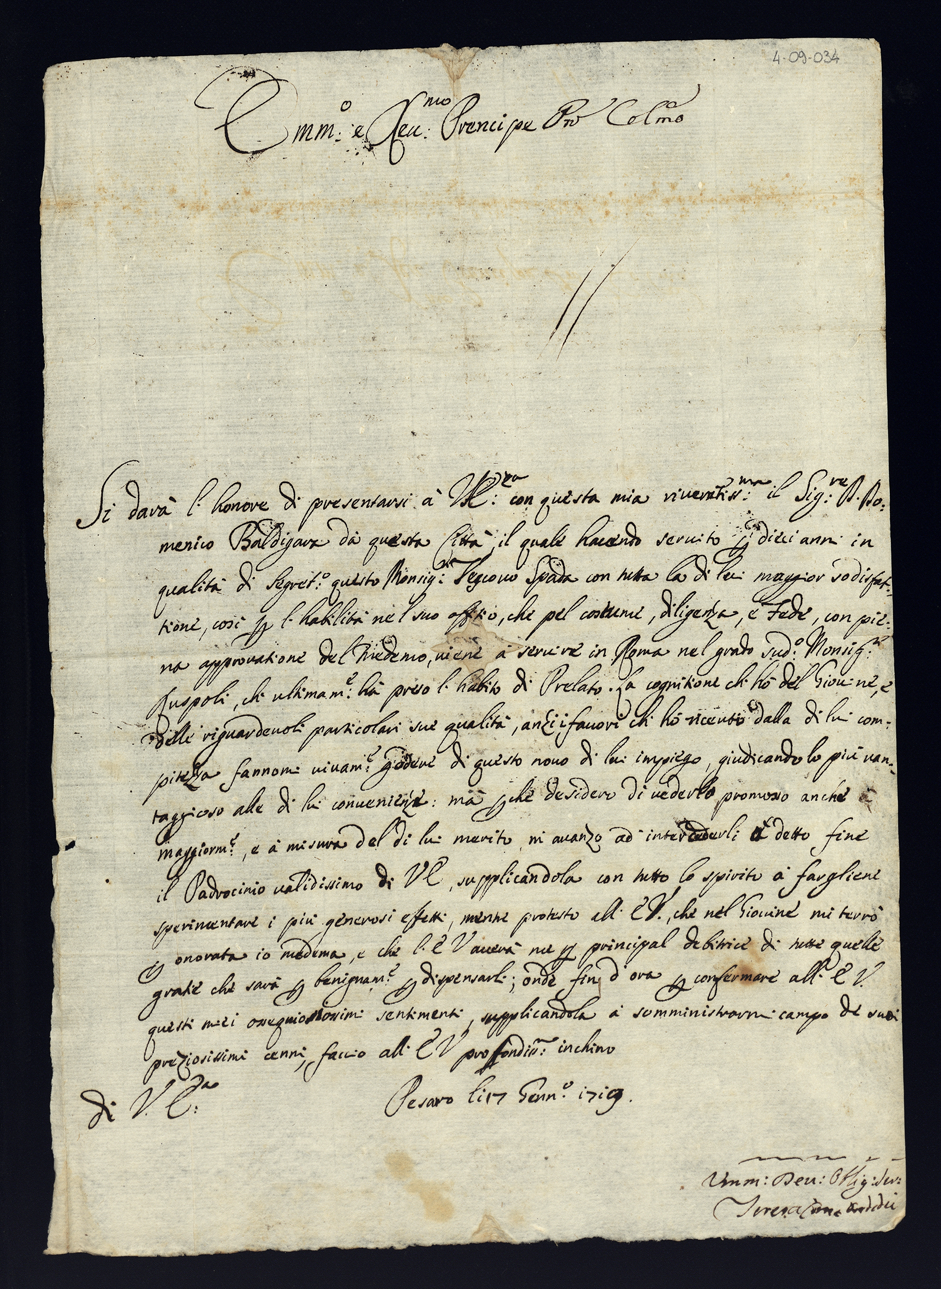 4-09-034
Emm:º e Reu:mo Prencipe Pne Colmo
Si darà l'honore di presentarsi à V.E:za con questa mia riveritiss:ma il Sig:re D. Do:
menico Baldisara da questa Città, il quale havendo servito p dieci anni in
qualità di Segret:º questo Monsig:r Vescovo Spada con tutta la di lui maggior sodisfat-
tione, così p l'habilità nel suo offitio, che pel costume, diligenza, e Fede, con pie:
na approvatione del Medemo, viene à servire in Roma nel grado sud:º Monsig:r
Ruspoli, ch'ultimam:e hà preso l'habito di Prelato. La cognitione ch'hò del Giovine, e
delle riguardevoli particolari sue qualità, anzi i favori ch'hò ricevuto dalla di lui com-
pitezza fannomi vivam:e godere di questo novo di lui impiego, giudicandolo più van-
taggioso alle di lui convenienze: mà pche desidero di vederlo promosso anche
maggiorm:e, e a misura del di lui merito, m'avanzo ad intercederli à detto fine
il Padrocinio validissimo di V.E, supplicandola con tutto lo spirito à fargliene
sperimentare i più generosi effetti, mentre protesto all'E.V., che nel Giovine mi terrò
p onorata io medema, e che l'E.V. averà me p principal debitrice di tutte quelle
gratie che sarà p benignam:e dispensarli; onde fin d'ora p confermare all'E.V.
questi miei ossequiosissimi sentimenti, supplicandola à somministrarmi campo de suoi
preziosissimi cenni, faccio all'E.V. profondiss:mo inchino
di V.E:za Pesaro li 17 Genn:º 1719.
Umm: Deu: Obblig: Ser:
Teresa